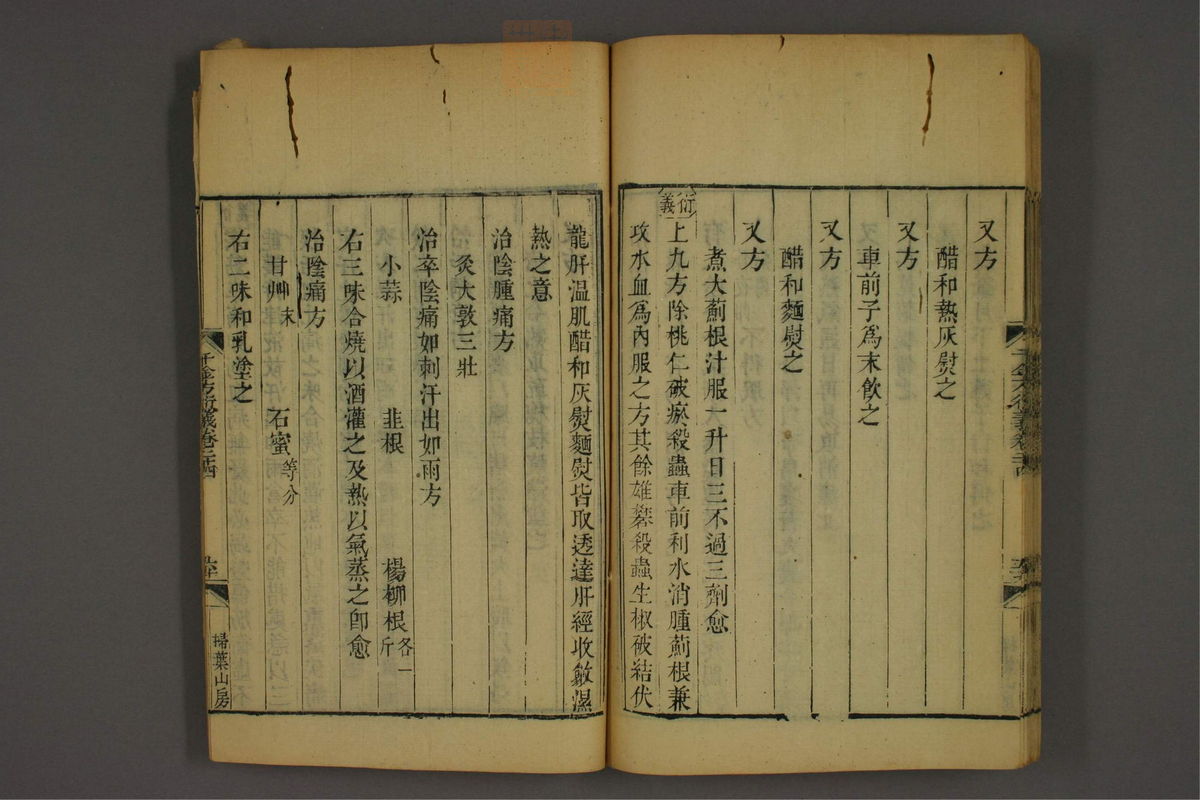 又方
醋和熱灰熨之
又方
車前子爲末飲之
又方
醋和麵熨之
又方
煮大薊根汁服一升日三不過三劑愈
衍義
上九方除桃仁破瘀殺蟲車前利水消腫薊根兼
攻水血爲內服之方其餘雄礬殺蟲生椒破結伏
龍肝温肌醋和灰熨麵熨皆取透達肝經收斂濕
熱之意
治陰腫痛方
灸大敦三壯
治卒陰痛如刺汗出如雨方
小蒜 韭根 楊柳根各一斤
右三味合燒以酒灌之及熱以氣蒸之卽愈
治陰痛方
甘艸末 石蜜等分
右二味和乳塗之
千金方衍義卷二十四
掃葉山房